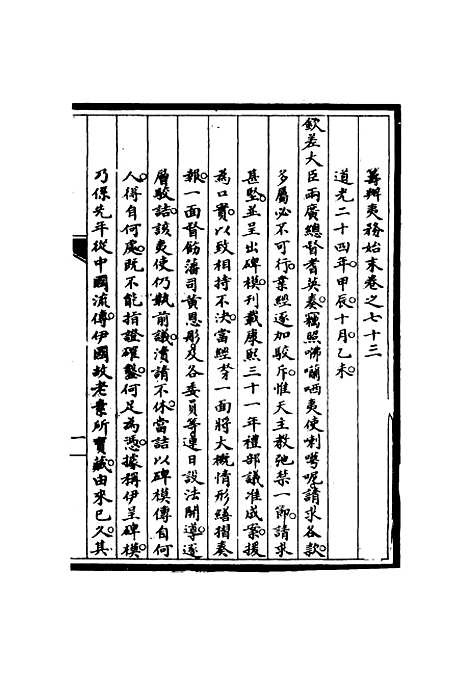 籌辦夷務始末卷之七十三
道光二十四年甲辰十月乙未
欽差大臣兩廣總督耆英奏竊照咈囒哂夷使喇咢呢請求各款
多屬必不可行業經逐加駁斥惟天主教弛禁一節請求
甚堅並呈出碑模刊載康熙三十一年禮部議准成案援
為口實以致相持不決當經努一面將大概情形繕摺奏
報一面督飭藩司黃恩彤及各委員等連日設法開導逐
層駁詰該夷使仍執前議瀆請不休當詰以碑模傳自何
人得自何處既不能指證確鑿何足為憑據稱伊呈碑模
乃係先年從中國流傳伊國故老業所寶藏由來已久其